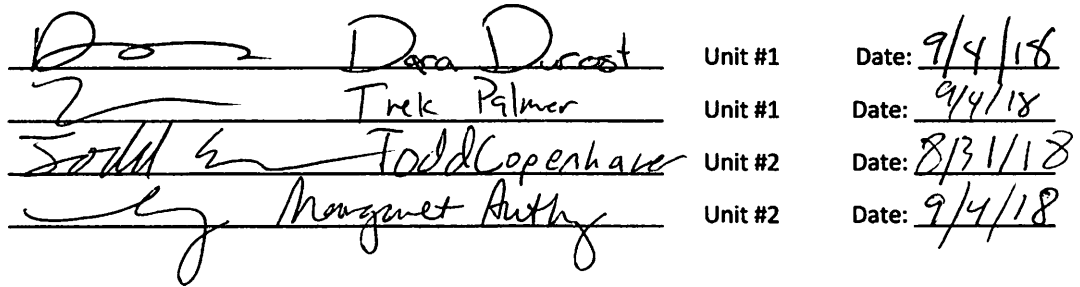 Dara Durost Unit #1 Date: 9/4/18
Trek Palmer Unit #1 Date: 9/4/18
Todd Todd Copenhaver Unit #2 Date: 8/31/18
Margaret Unit #2 Date: 9/4/18